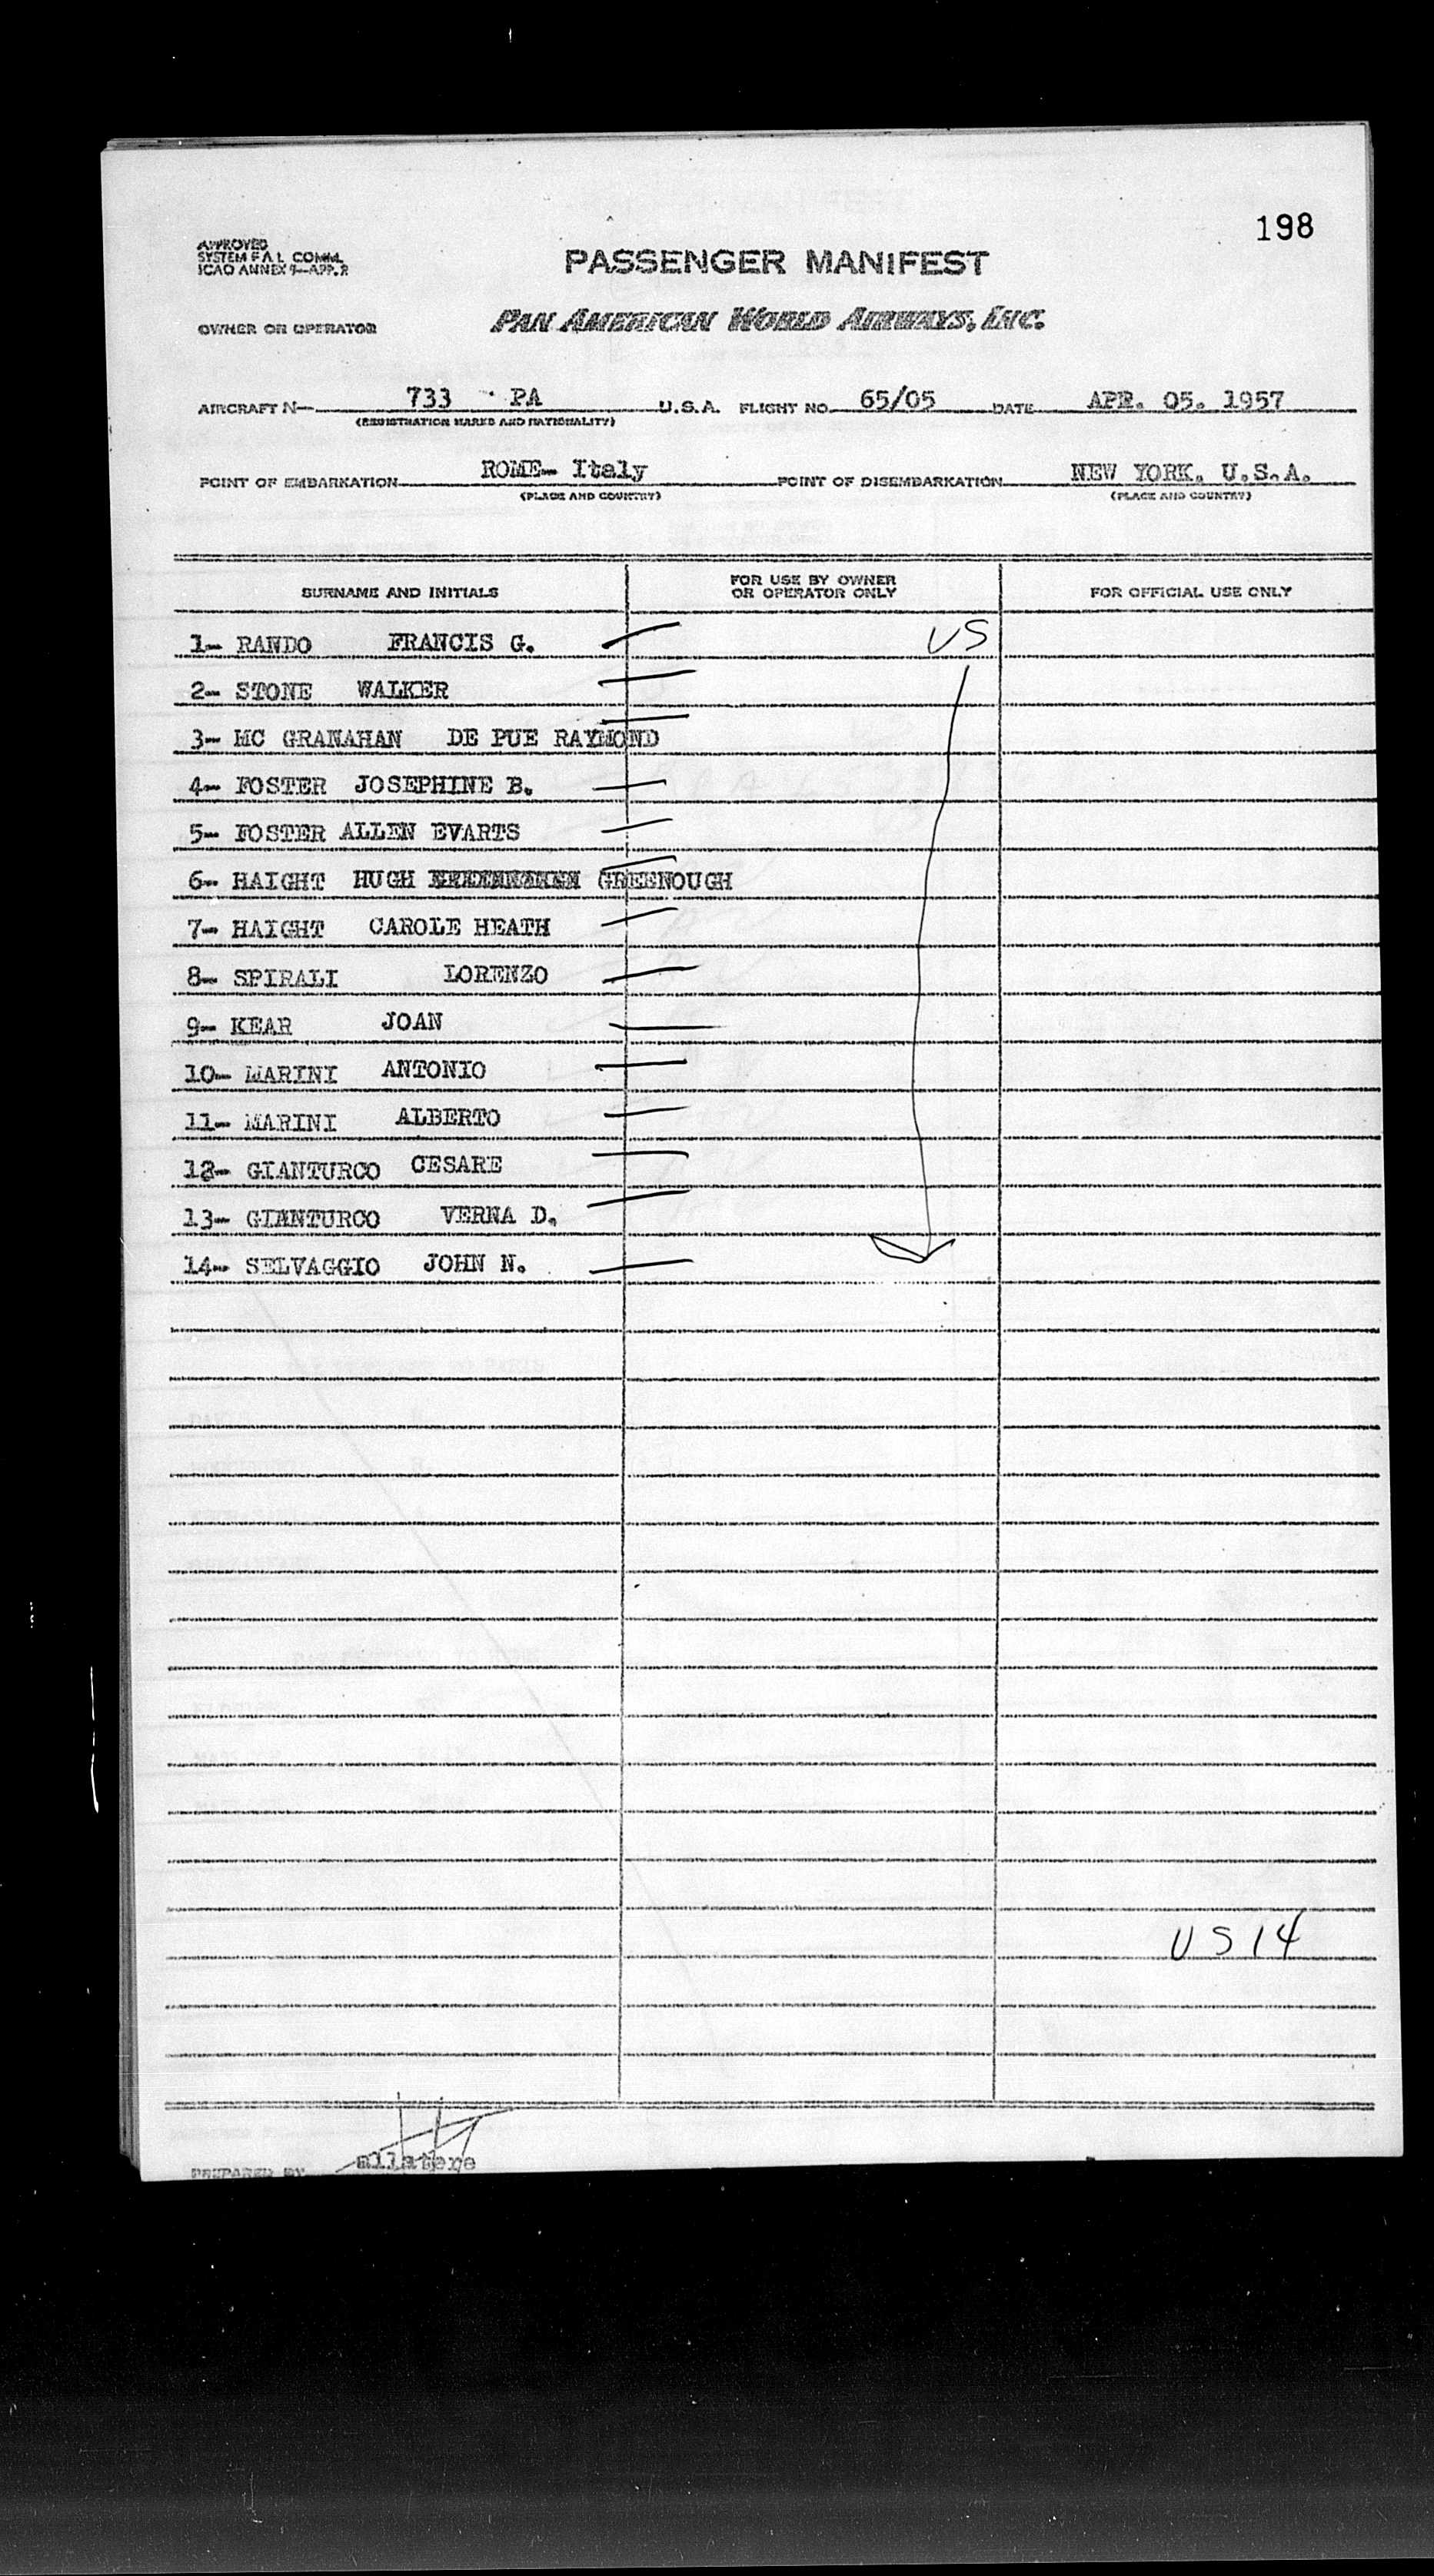 198
APPROVED
SYSTEM F A L COMM.
ICAO ANNEX 9—APP. 2
PASSENGER MANIFEST
OWNER OR OPERATOR PAN AMERICAN WORLD AIRWAYS, INC.
AIRCRAFT N— 733 PA U.S.A. FLIGHT NO. 65/05 DATE APR. 05. 1957
(REGISTRATION MARKS AND NATIONALITY)
POINT OF EMBARKATION ROME- Italy POINT OF DISEMBARKATION NEW YORK. U.S.A.
(PLACE AND COUNTRY) (PLACE AND COUNTRY)
SURNAME AND INITIALS FOR USE BY OWNER OR OPERATOR ONLY FOR OFFICIAL USE ONLY
1- RANDO FRANCIS G. US
2- STONE WALKER
3- MC GRANAHAN DE PUE RAYMOND
4- FOSTER JOSEPHINE B.
5- FOSTER ALLEN EVARTS
6- HAIGHT HUGH GREENOUGH
7- HAIGHT CAROLE HEATH
8- SPIRALI LORENZO
9- KEAR JOAN
10- MARINI ANTONIO
11- MARINI ALBERTO
12- GIANTURCO CESARE
13- GIANTURCO VERNA D.
14- SELVAGGIO JOHN N.
US 14
PREPARED BY allatere